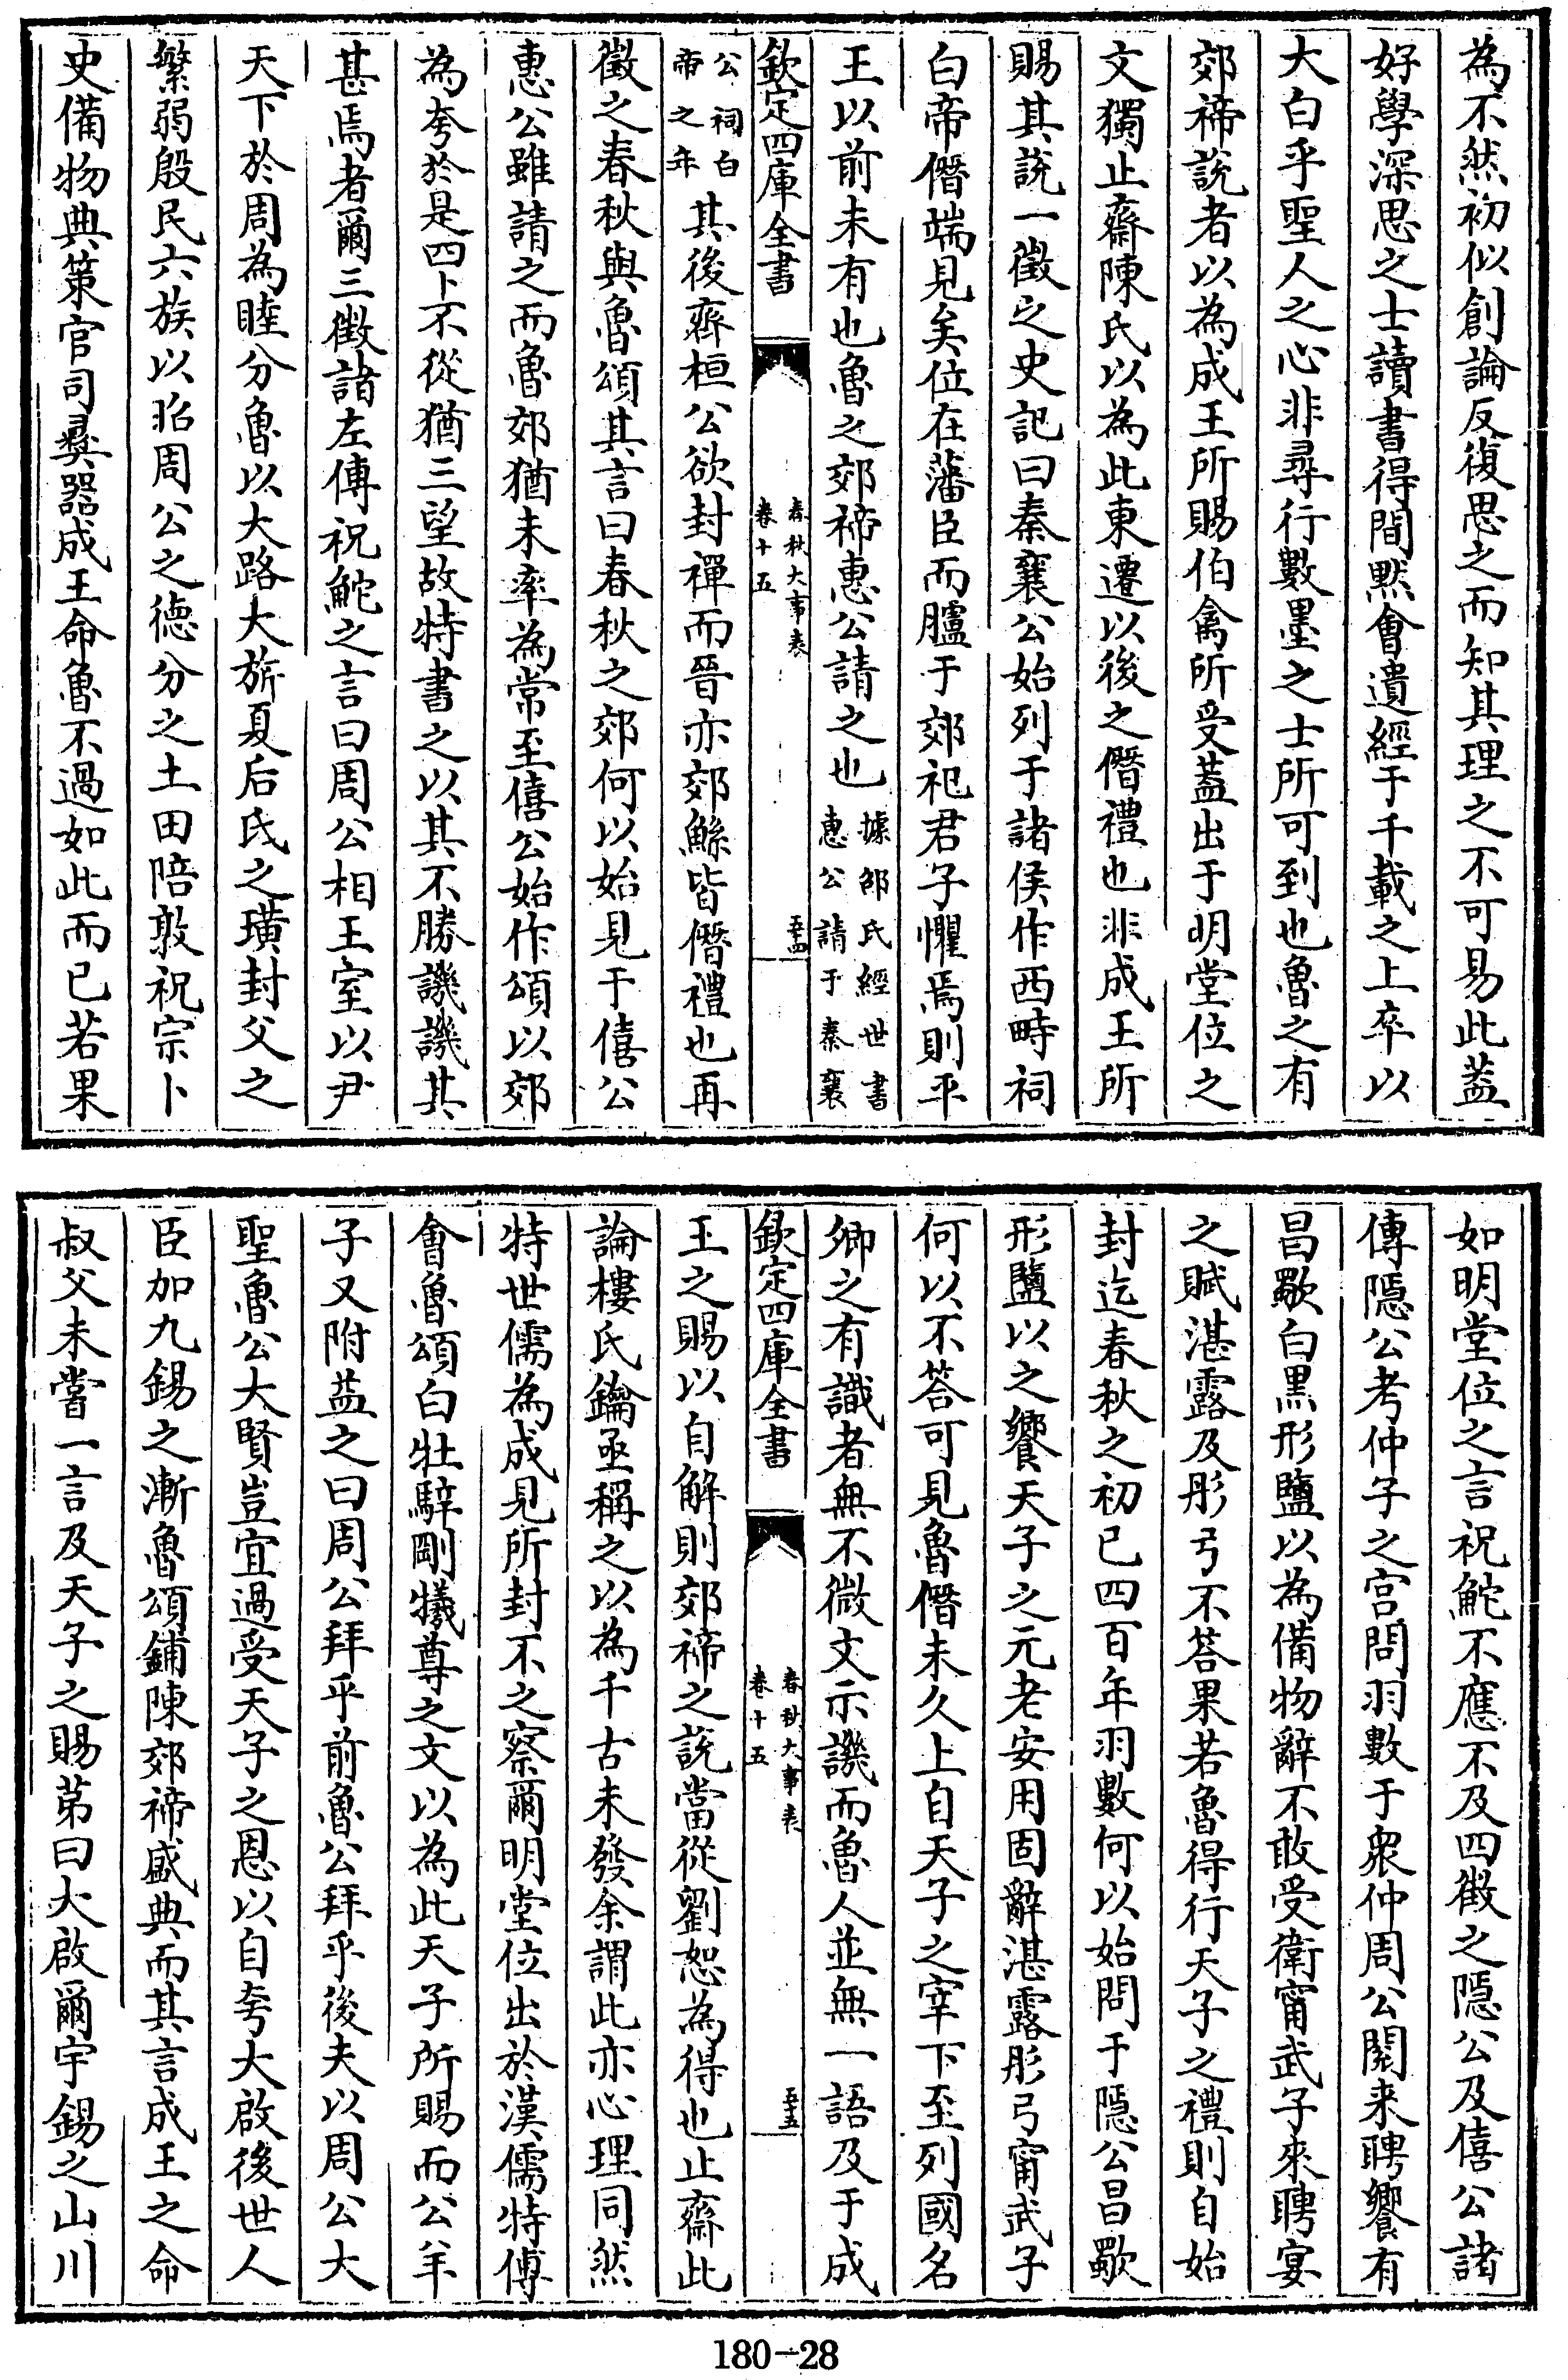 為不然初似創論反復思之而知其理之不可易此蓋
好學深思之士讀書得間默會遺經于千載之上卒以
大白乎聖人之心非尋行數墨之士所可到也魯之有
郊禘說者以為成王所賜伯禽所受蓋出于明堂位之
文獨止齋陳氏以為此東遷以後之僭禮也非成王所
賜其說一徵之史記曰秦襄公始列于諸侯作西畤祠
白帝僭端見矣位在藩臣而臚于郊祀君子懼焉則平
王以前未有也魯之郊禘惠公請之也據邵氏經世書惠公請于秦襄
欽定四庫全書
春秋大事表
卷十五
五十四
公祠白帝之年其後齊桓公欲封禪而晉亦郊鯀皆僭禮也再
徵之春秋與魯頌其言曰春秋之郊何以始見于僖公
惠公雖請之而魯郊猶未率為常至僖公始作頌以郊
為夸於是四卜不從猶三望故特書之以其不勝譏譏其
甚焉者爾三徵諸左傳祝鮀之言曰周公相王室以尹
天下於周為睦分魯以大路大旂夏后氏之璜封父之
繁弱殷民六族以昭周公之德分之土田陪敦祝宗卜
史備物典策官司彛器成王命魯不過如此而已若果
如明堂位之言祝鮀不應不及四徵之隱公及僖公諸
傳隱公考仲子之宮問羽數于衆仲周公閱来聘饗有
昌歜白黑形鹽以為備物辭不敢受衛甯武子來聘宴
之賦湛露及彤弓不答果若魯得行天子之禮則自始
封迄春秋之初已四百年羽數何以始問于隱公昌歜
形鹽以之饗天子之元老安用固辭湛露彤弓甯武子
何以不答可見魯僭未久上自天子之宰下至列國名
卿之有識者無不微文示譏而魯人並無一語及于成
欽定四庫全書
春秋大事表
卷十五
五十五
王之賜以自解則郊禘之說當從劉恕為得也止齋此
論樓氏鑰亟稱之以為千古未發余謂此亦心理同然
特世儒為成見所封不之察爾明堂位出於漢儒特傅
會魯頌白牡騂剛犧尊之文以為此天子所賜而公羊
子又附益之曰周公拜乎前魯公拜乎後夫以周公大
聖魯公大賢豈宜過受天子之恩以自夸大啟後世人
臣加九錫之漸魯頌鋪陳郊禘盛典而其言成王之命
叔父未嘗一言及天子之賜第曰大啟爾宇錫之山川
180-28